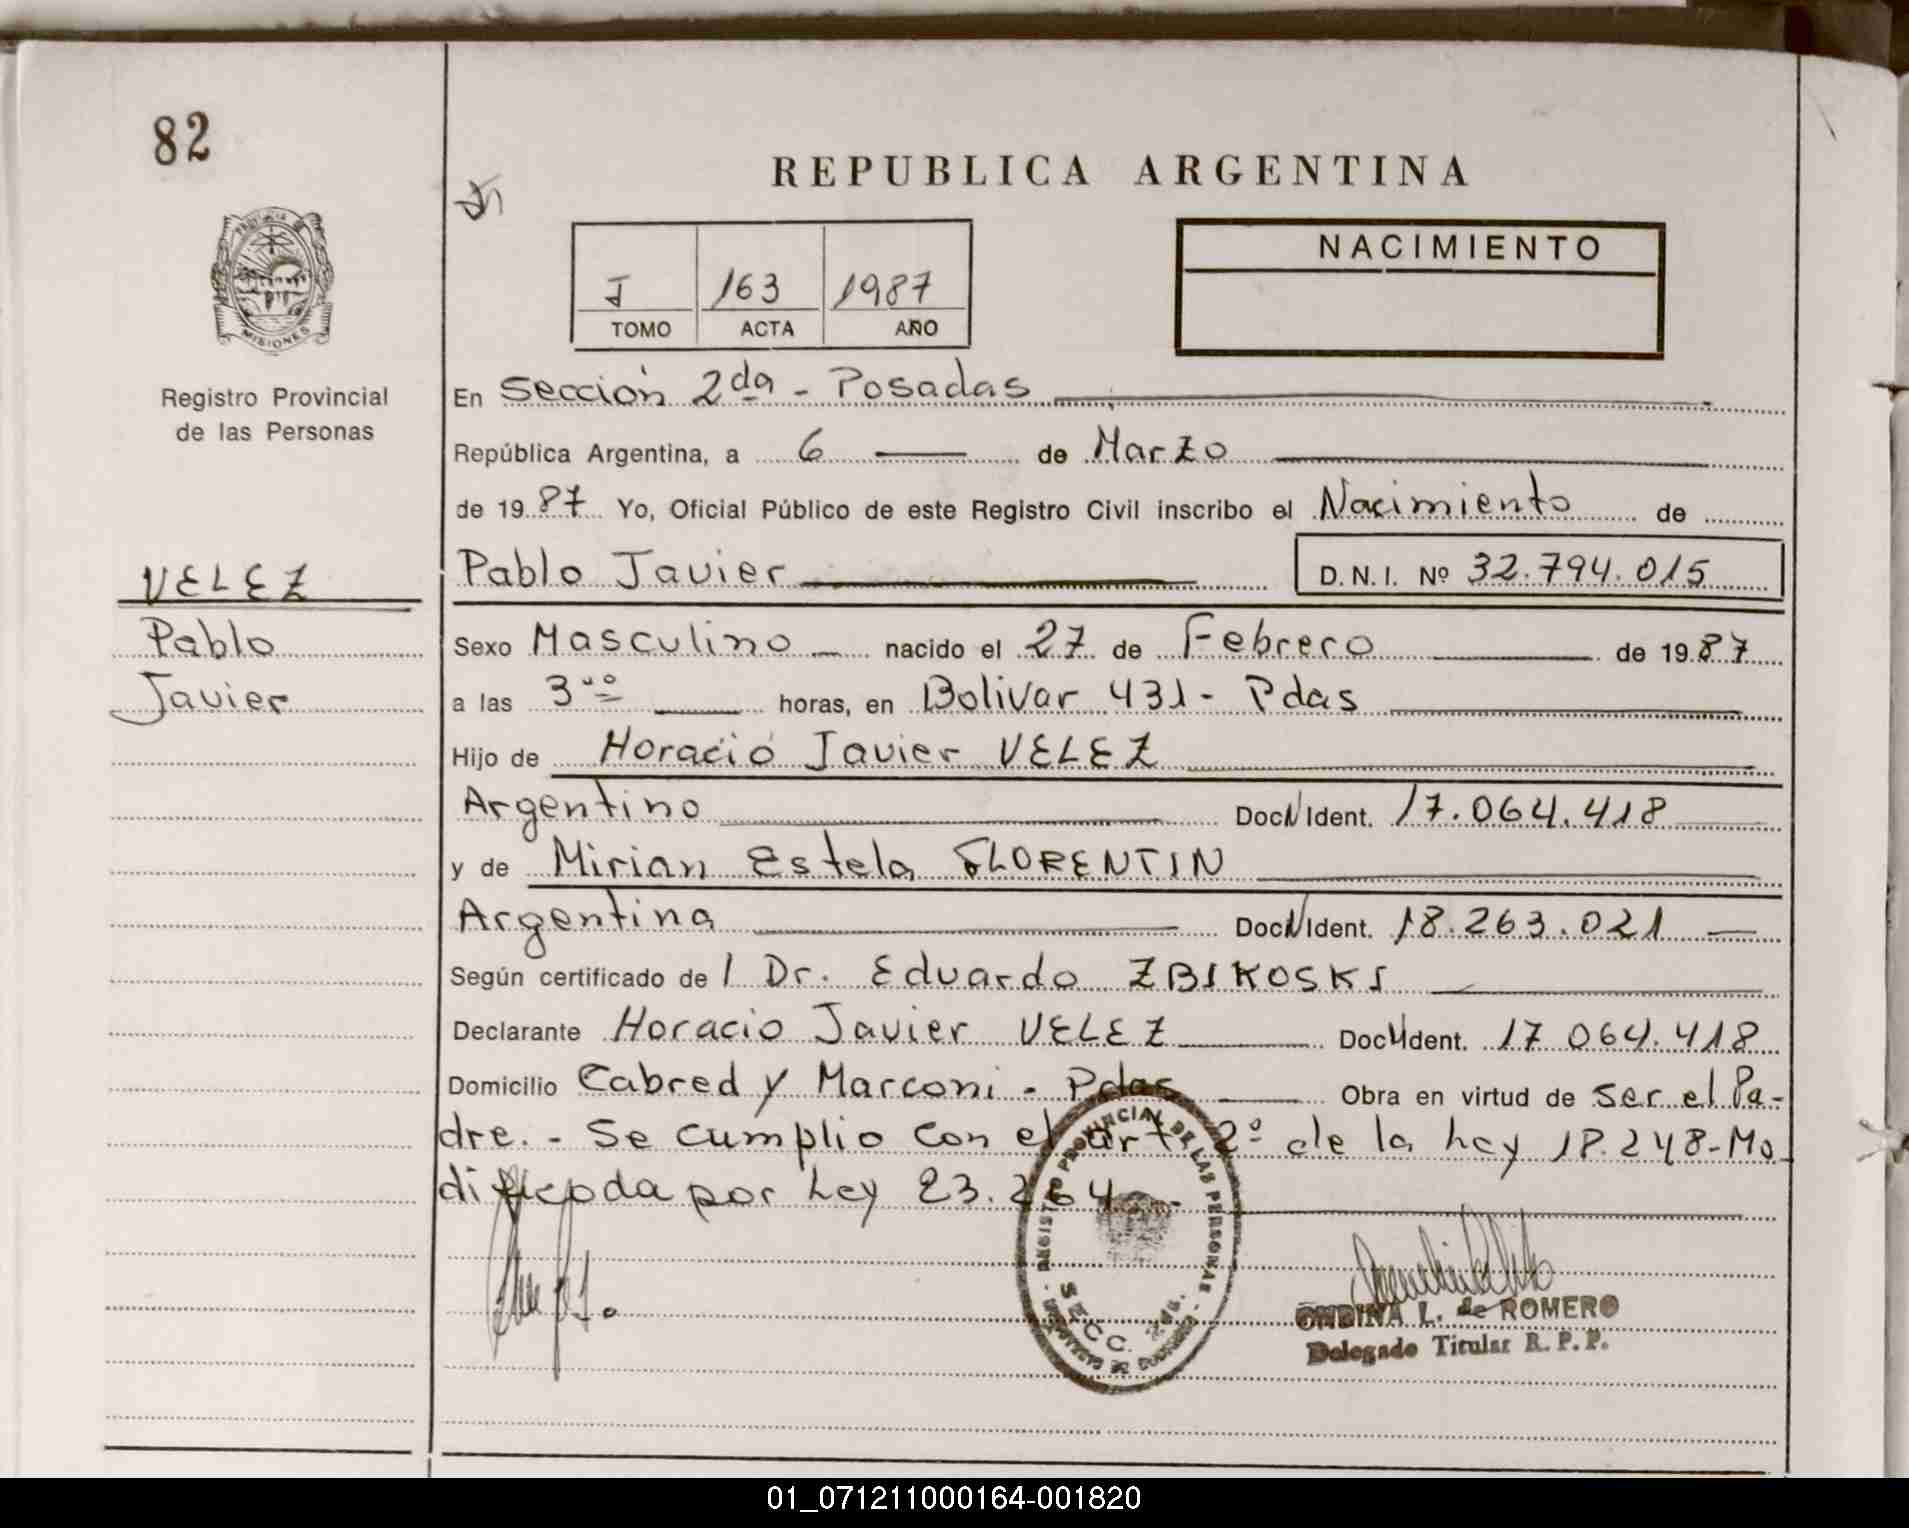 82
REPUBLICA ARGENTINA
PROVINCIA DE
MISIONES
Registro Provincial
de las Personas
I 163 1987
TOMO ACTA AÑO
NACIMIENTO
En Sección 2da - Posadas
República Argentina, a 6 de Marzo
de 1987 Yo, Oficial Público de este Registro Civil inscribo el Nacimiento de
Pablo Javier D.N.I. Nº 32.794.015
VELEZ
Pablo
Javier
Sexo Masculino nacido el 27 de Febrero de 1987
a las 3 horas, en Bolivar 431 - Pdas
Hijo de Horacio Javier VELEZ
Argentino Doc N Ident. 17.064.418
y de Mirian Estela FLORENTIN
Argentina Doc N Ident. 18.263.021
Según certificado de l Dr. Eduardo ZBIKOSKI
Declarante Horacio Javier VELEZ Doc N Ident. 17 064.418
Domicilio Cabred y Marconi - Pdas Obra en virtud de ser el Pa-
dre. - Se cumplio con el art 2º de la Ley 18.248-Mo
dificada por Ley 23.264.-
REGISTRO PROVINCIAL DE LAS PERSONAS
SECC. 2da.
ONDINA L. de ROMERO
Delegado Titular R. P. P.
01_071211000164-001820